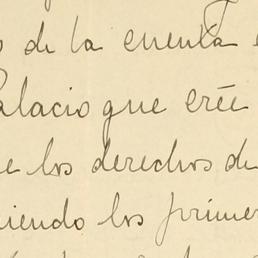 de la cuenta
Palacio que crée
los derechos de
los primer